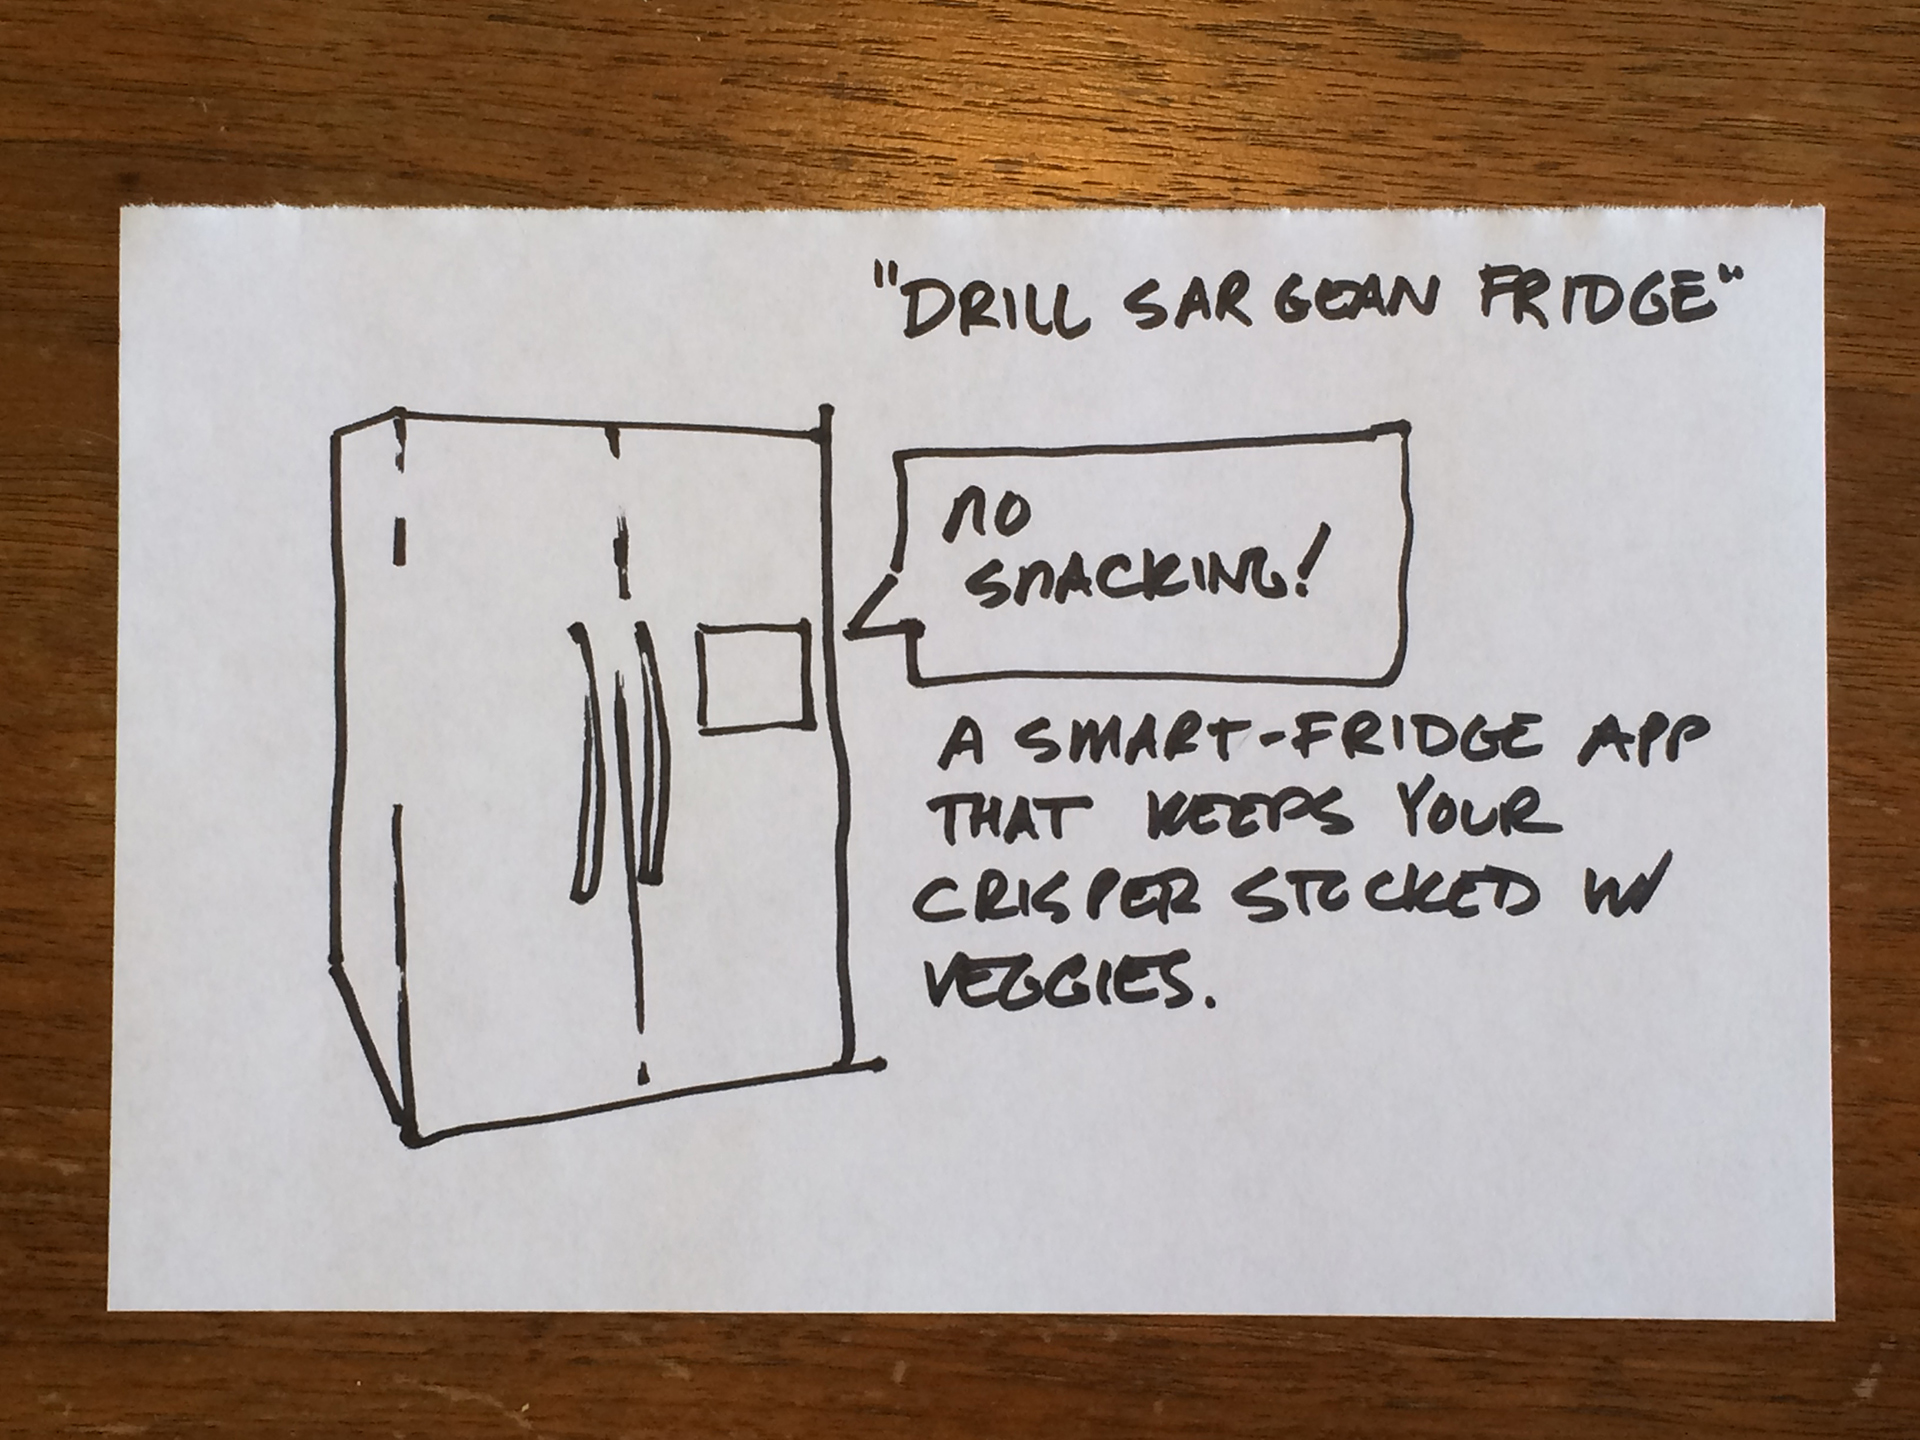 "DRILL SARGEAN FRIDGE"
NO
SNACKING!
A SMART-FRIDGE APP
THAT KEEPS YOUR
CRISPER STOCKED W/
VEGGIES.